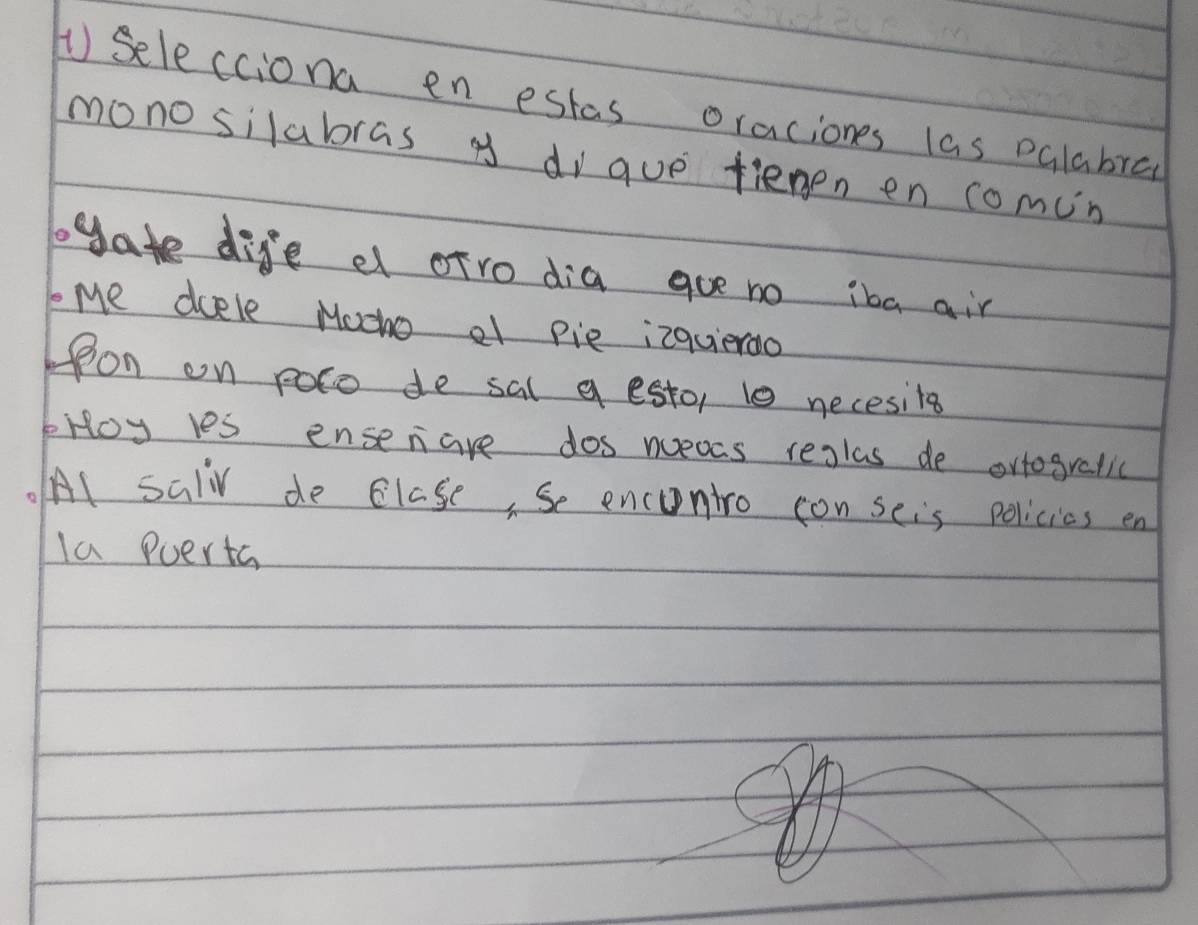 1) Selecciona en estas oraciones las palabras
monosilabras y di que tienen en común
• Yate dije el otro dia que no iba air
• Me duele Mucho el Pie izquierdo
• Pon un poco de sal a esto, lo necesita
• Hoy les enseñare dos nuevas reglas de ortografic
• Al salir de clase, se encuntro con seis policias en
la Puerta